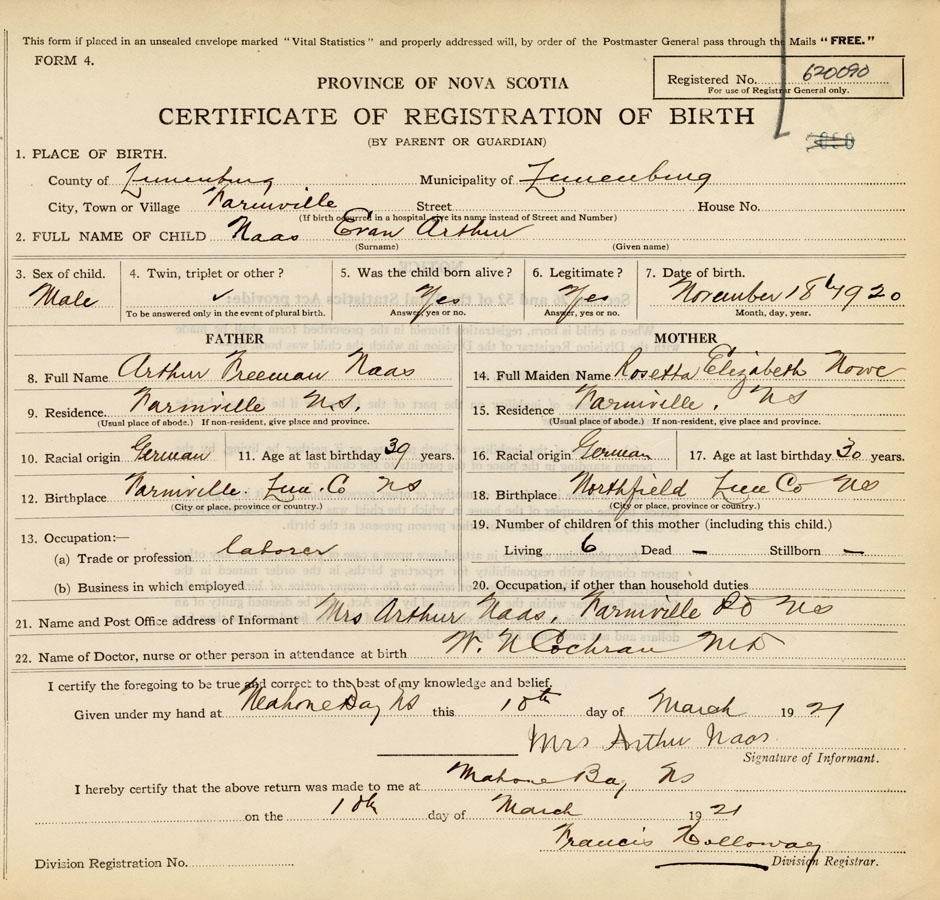 This form if placed in an unsealed envelope marked "Vital Statistics" and properly addressed will, by order of the Postmaster General pass through the Mails "FREE."
FORM 4.
Registered No. 620090
For use of Registrar General only.
PROVINCE OF NOVA SCOTIA
CERTIFICATE OF REGISTRATION OF BIRTH
(BY PARENT OR GUARDIAN)
1. PLACE OF BIRTH.
County of Lunenburg Municipality of Lunenburg
City, Town or Village Farmville Street House No.
(If birth occurred in a hospital, give its name instead of Street and Number)
2. FULL NAME OF CHILD Naas Evan Arthur
(Surname) (Given name)
3. Sex of child. 4. Twin, triplet or other? 5. Was the child born alive? 6. Legitimate? 7. Date of birth.
Male ✓ Yes Yes November 18th 1920
To be answered only in the event of plural birth. Answer, yes or no. Answer, yes or no. Month, day, year.
FATHER MOTHER
8. Full Name Arthur Freeman Naas 14. Full Maiden Name Rosetta Elizabeth Nowe
9. Residence. Farmville N.S. 15. Residence Farmville, NS
(Usual place of abode.) If non-resident, give place and province. (Usual place of abode.) If non-resident, give place and province.
10. Racial origin German 11. Age at last birthday 39 years. 16. Racial origin German 17. Age at last birthday 30 years.
12. Birthplace Farmville. Lun. Co NS 18. Birthplace Northfield Lun Co NS
(City or place, province or country.) (City or place, province or country.)
13. Occupation:— 19. Number of children of this mother (including this child.)
(a) Trade or profession laborer Living 6 Dead — Stillborn —
(b) Business in which employed 20. Occupation, if other than household duties
21. Name and Post Office address of Informant Mrs Arthur Naas, Farmville PO NS
22. Name of Doctor, nurse or other person in attendance at birth W. N Cochran MD
I certify the foregoing to be true and correct to the best of my knowledge and belief.
Given under my hand at Mahone Bay NS this 10th day of March 1921
Mrs Arthur Naas
Signature of Informant.
I hereby certify that the above return was made to me at Mahone Bay NS
on the 10th day of March 1921
Francis Holloway
Division Registration No. Division Registrar.